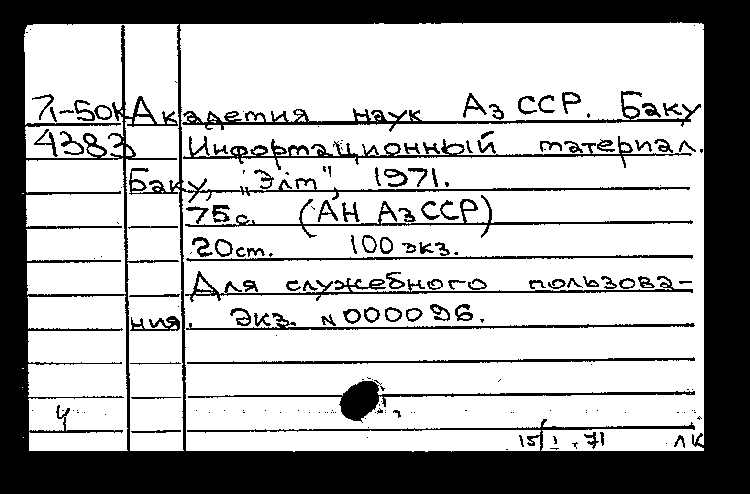 71-50к Академия наук Аз ССР. Баку
4383 Информационный материал.
Баку, "Элт", 1971.
75 с. (АН Аз ССР)
20 ст. 100 экз.
Для служебного пользова-
ния. Экз. №000096.
4
15/I.71 ЛК